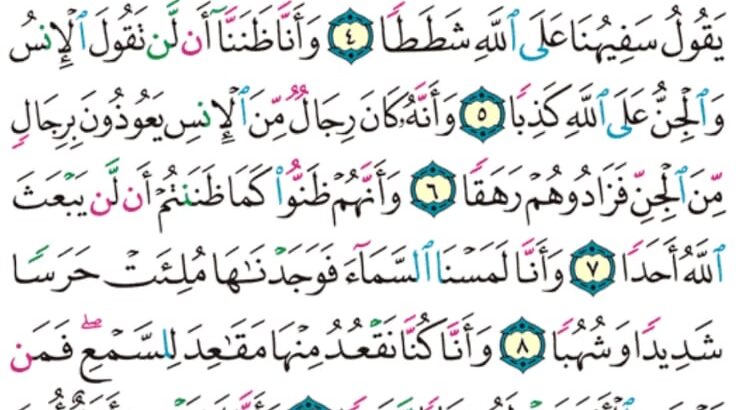 يَقُولُ سَفِيهُنَا عَلَى ٱللَّهِ شَطَطًا ٤ وَأَنَّا ظَنَنَّآ أَن لَّن تَقُولَ ٱلْإِنسُ
وَٱلْجِنُّ عَلَى ٱللَّهِ كَذِبًا ٥ وَأَنَّهُۥ كَانَ رِجَالٌ مِّنَ ٱلْإِنسِ يَعُوذُونَ بِرِجَالٍ
مِّنَ ٱلْجِنِّ فَزَادُوهُمْ رَهَقًا ٦ وَأَنَّهُمْ ظَنُّوا۟ كَمَا ظَنَنتُمْ أَن لَّن يَبْعَثَ
ٱللَّهُ أَحَدًا ٧ وَأَنَّا لَمَسْنَا ٱلسَّمَآءَ فَوَجَدْنَـٰهَا مُلِئَتْ حَرَسًا
شَدِيدًا وَشُهُبًا ٨ وَأَنَّا كُنَّا نَقْعُدُ مِنْهَا مَقَـٰعِدَ لِلسَّمْعِ ۖ فَمَن